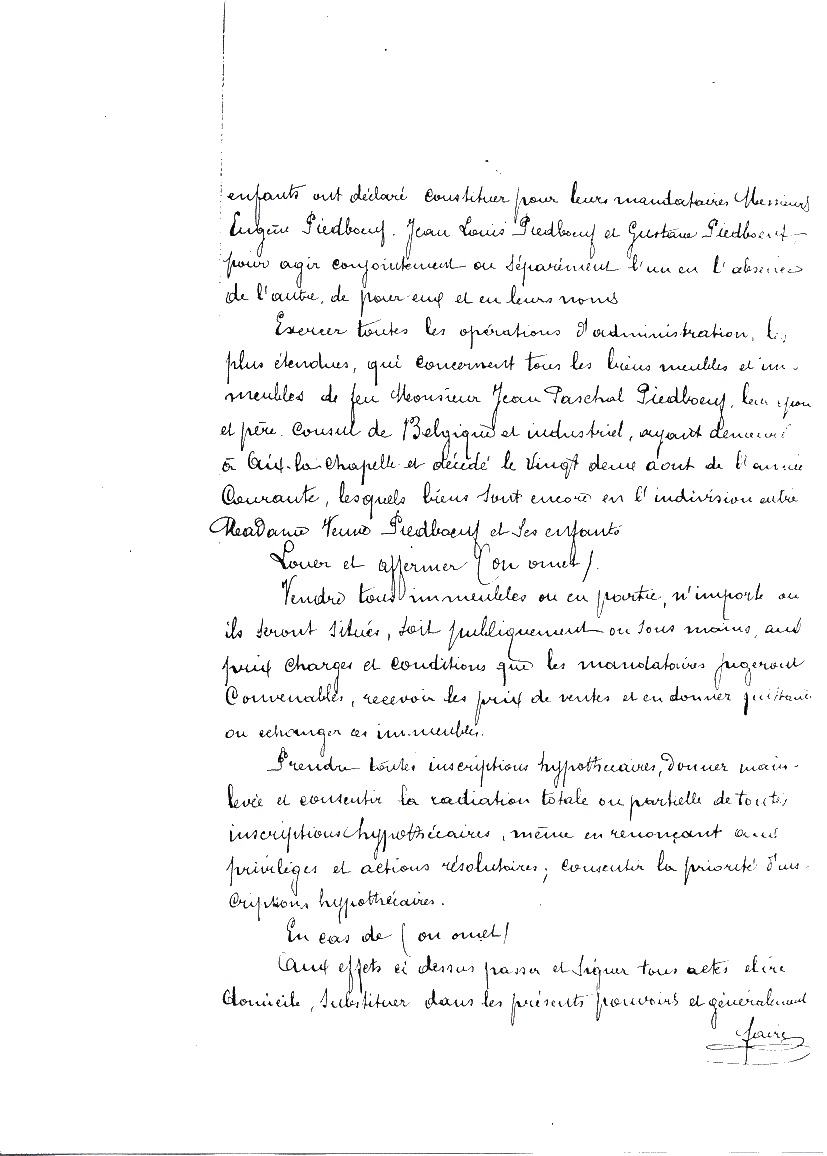 enfants ont déclaré constituer pour leurs mandataires Messieurs
Eugène Piedboeuf. Jean Louis Piedboeuf et Gustave Piedboeuf –
pour agir conjointement ou séparément l'un en l'absence
de l'autre, de pour eux et en leurs noms
Exercer toutes les opérations d'administration, les
plus étendues, qui concernent tous les biens meubles et im-
meubles de feu Monsieur Jean Paschal Piedboeuf, leur époux
et père. Consul de Belgique et industriel, ayant demeuré
à Aix-la-Chapelle et décédé le vingt deux aout de l'année
Courante, lesquels biens sont encore en l'indivision entre
Madame Veuve Piedboeuf et ses enfants
Louer et affermer (on omet).
Vendre tous immeubles ou en partie, n'importe ou
ils seront situés, soit publiquement ou sous mains, aux
prix charges et conditions que les mandataires jugeront
Convenables, recevoir les prix de ventes et en donner quittance
ou echanger ces immeubles.
Prendre toutes inscriptions hypothécaires, donner main-
levée et consentir la radiation totale ou partielle de toutes
inscriptions hypothécaires, même en renonçant aux
privilèges et actions résolutoires; consentir la priorité d'ins-
criptions hypothécaires.
En cas de (on omet)
Aux effets ci dessus passer et signer tous actes elire
domicile, substituer dans les présents pouvoirs et généralement
faire